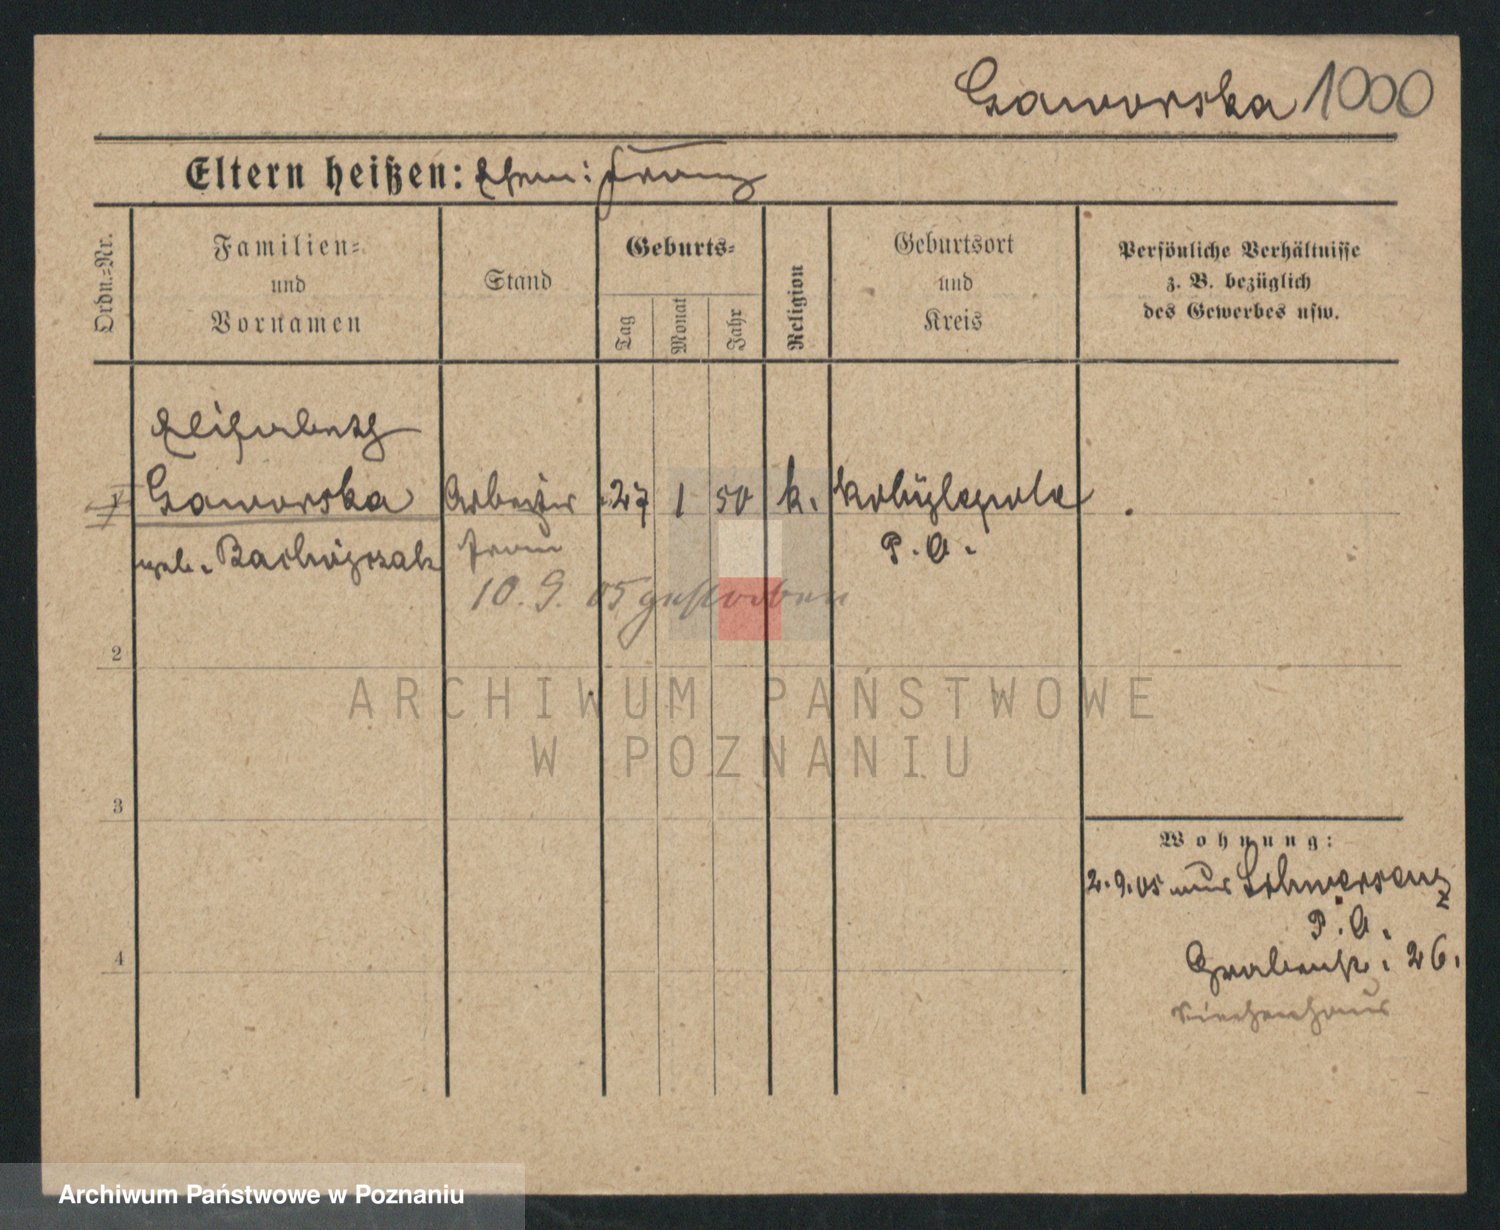 Gaworska 1000
Eltern heißen: Ehem: Franz
Ordn.-Nr.
Familien-
und
Vornamen
Stand
Geburts-
Tag
Monat
Jahr
Religion
Geburtsort
und
Kreis
Persönliche Verhältnisse
z. B. bezüglich
des Gewerbes usw.
Elisabeth
Gaworska
geb. Bachórzsak
Arbeiter
frau
27 1 50 k. Kobylepole
P. O.
10. 9. 05 gestorben
2
3
4
Wohnung:
2.9.05 aus Schwersenz
P. O.
Grabenstr. 26.
Siechenhaus
ARCHIWUM PAŃSTWOWE
W POZNANIU
Archiwum Państwowe w Poznaniu